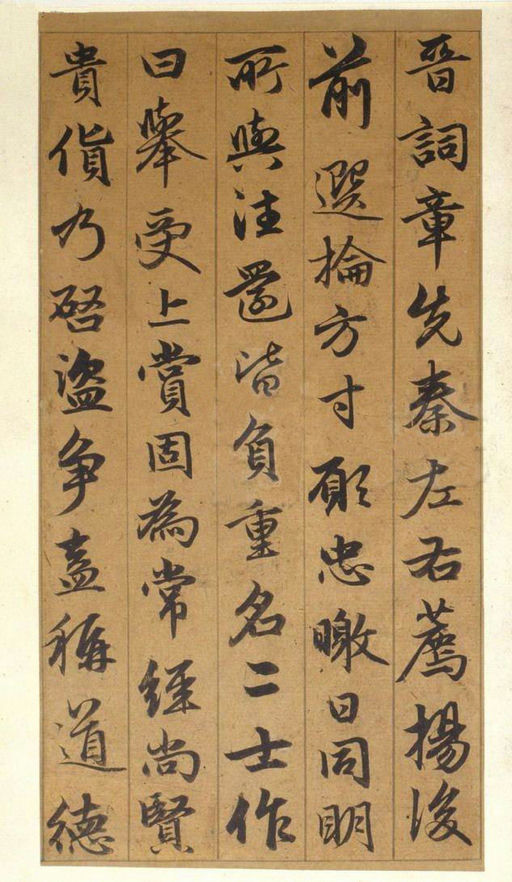 晋詞章先秦左右薦揚後
前選掄方寸願忠曒日同明
所與往還皆負重名二士作
曰舉受上賞固為常經尚賢
貴貨乃啓盜爭盍稱道德